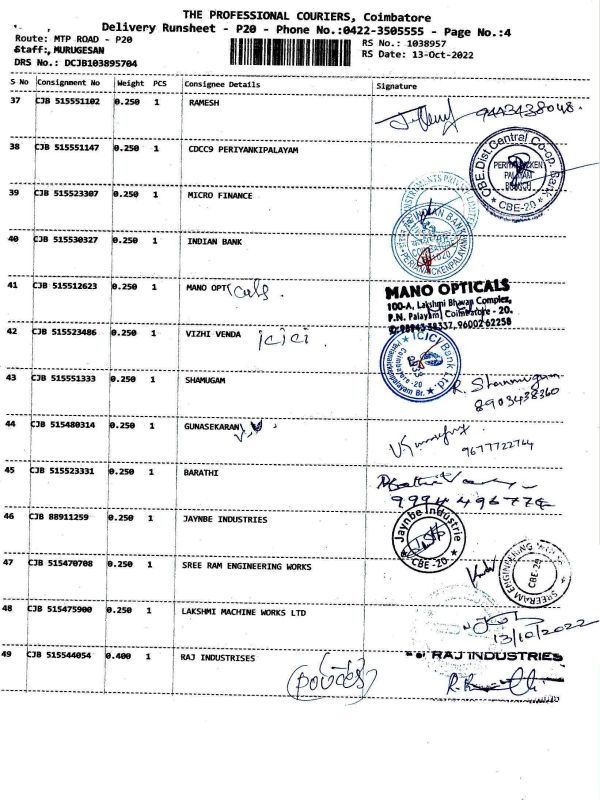 THE PROFESSIONAL COURIERS, Coimbatore
Delivery Runsheet - P20 - Phone No.:0422-3505555 - Page No.:4
Route: MTP ROAD - P20
RS No.: 1038957
Staff:, MURUGESAN
RS Date: 13-Oct-2022
DRS No.: DCJB103895704
S No Consignment No Weight PCS Consignee Details Signature
37 CJB 515551102 0.250 1 RAMESH 9443438048.
38 CJB 515551147 0.250 1 CDCC9 PERIYANKIPALAYAM
CBE.Dist.Central Co-op. Bank
PALAYAM
BRANCH
CBE-20
39 CJB 515523307 0.250 1 MICRO FINANCE
40 CJB 515530327 0.250 1 INDIAN BANK
INDIAN BANK
41 CJB 515512623 0.250 1 MANO OPTicals.
MANO OPTICALS
100-A, Lakshmi Bhavan Complex,
P.N. Palayam, Coimbatore - 20.
42 CJB 515523486 0.250 1 VIZHI VENDA icici
ICICI Bank Ltd.
Coimbatore -20
43 CJB 515551333 0.250 1 SHAMUGAM R. Shanmugam
8903438360
44 CJB 515480314 0.250 1 GUNASEKARAN
9677722764
45 CJB 515523331 0.250 1 BARATHI
46 CJB 88911259 0.250 1 JAYNBE INDUSTRIES
Jaynbe Industrie
CBE-20
47 CJB 515470708 0.250 1 SREE RAM ENGINEERING WORKS
SREERAM ENGINEERING WORKS
CBE-20
48 CJB 515475900 0.250 1 LAKSHMI MACHINE WORKS LTD
13/10/2022
49 CJB 515544054 0.400 1 RAJ INDUSTRISES
RAJ INDUSTRIES